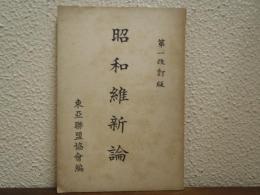 第一改訂版
昭和維新論
東亞聯盟協會編